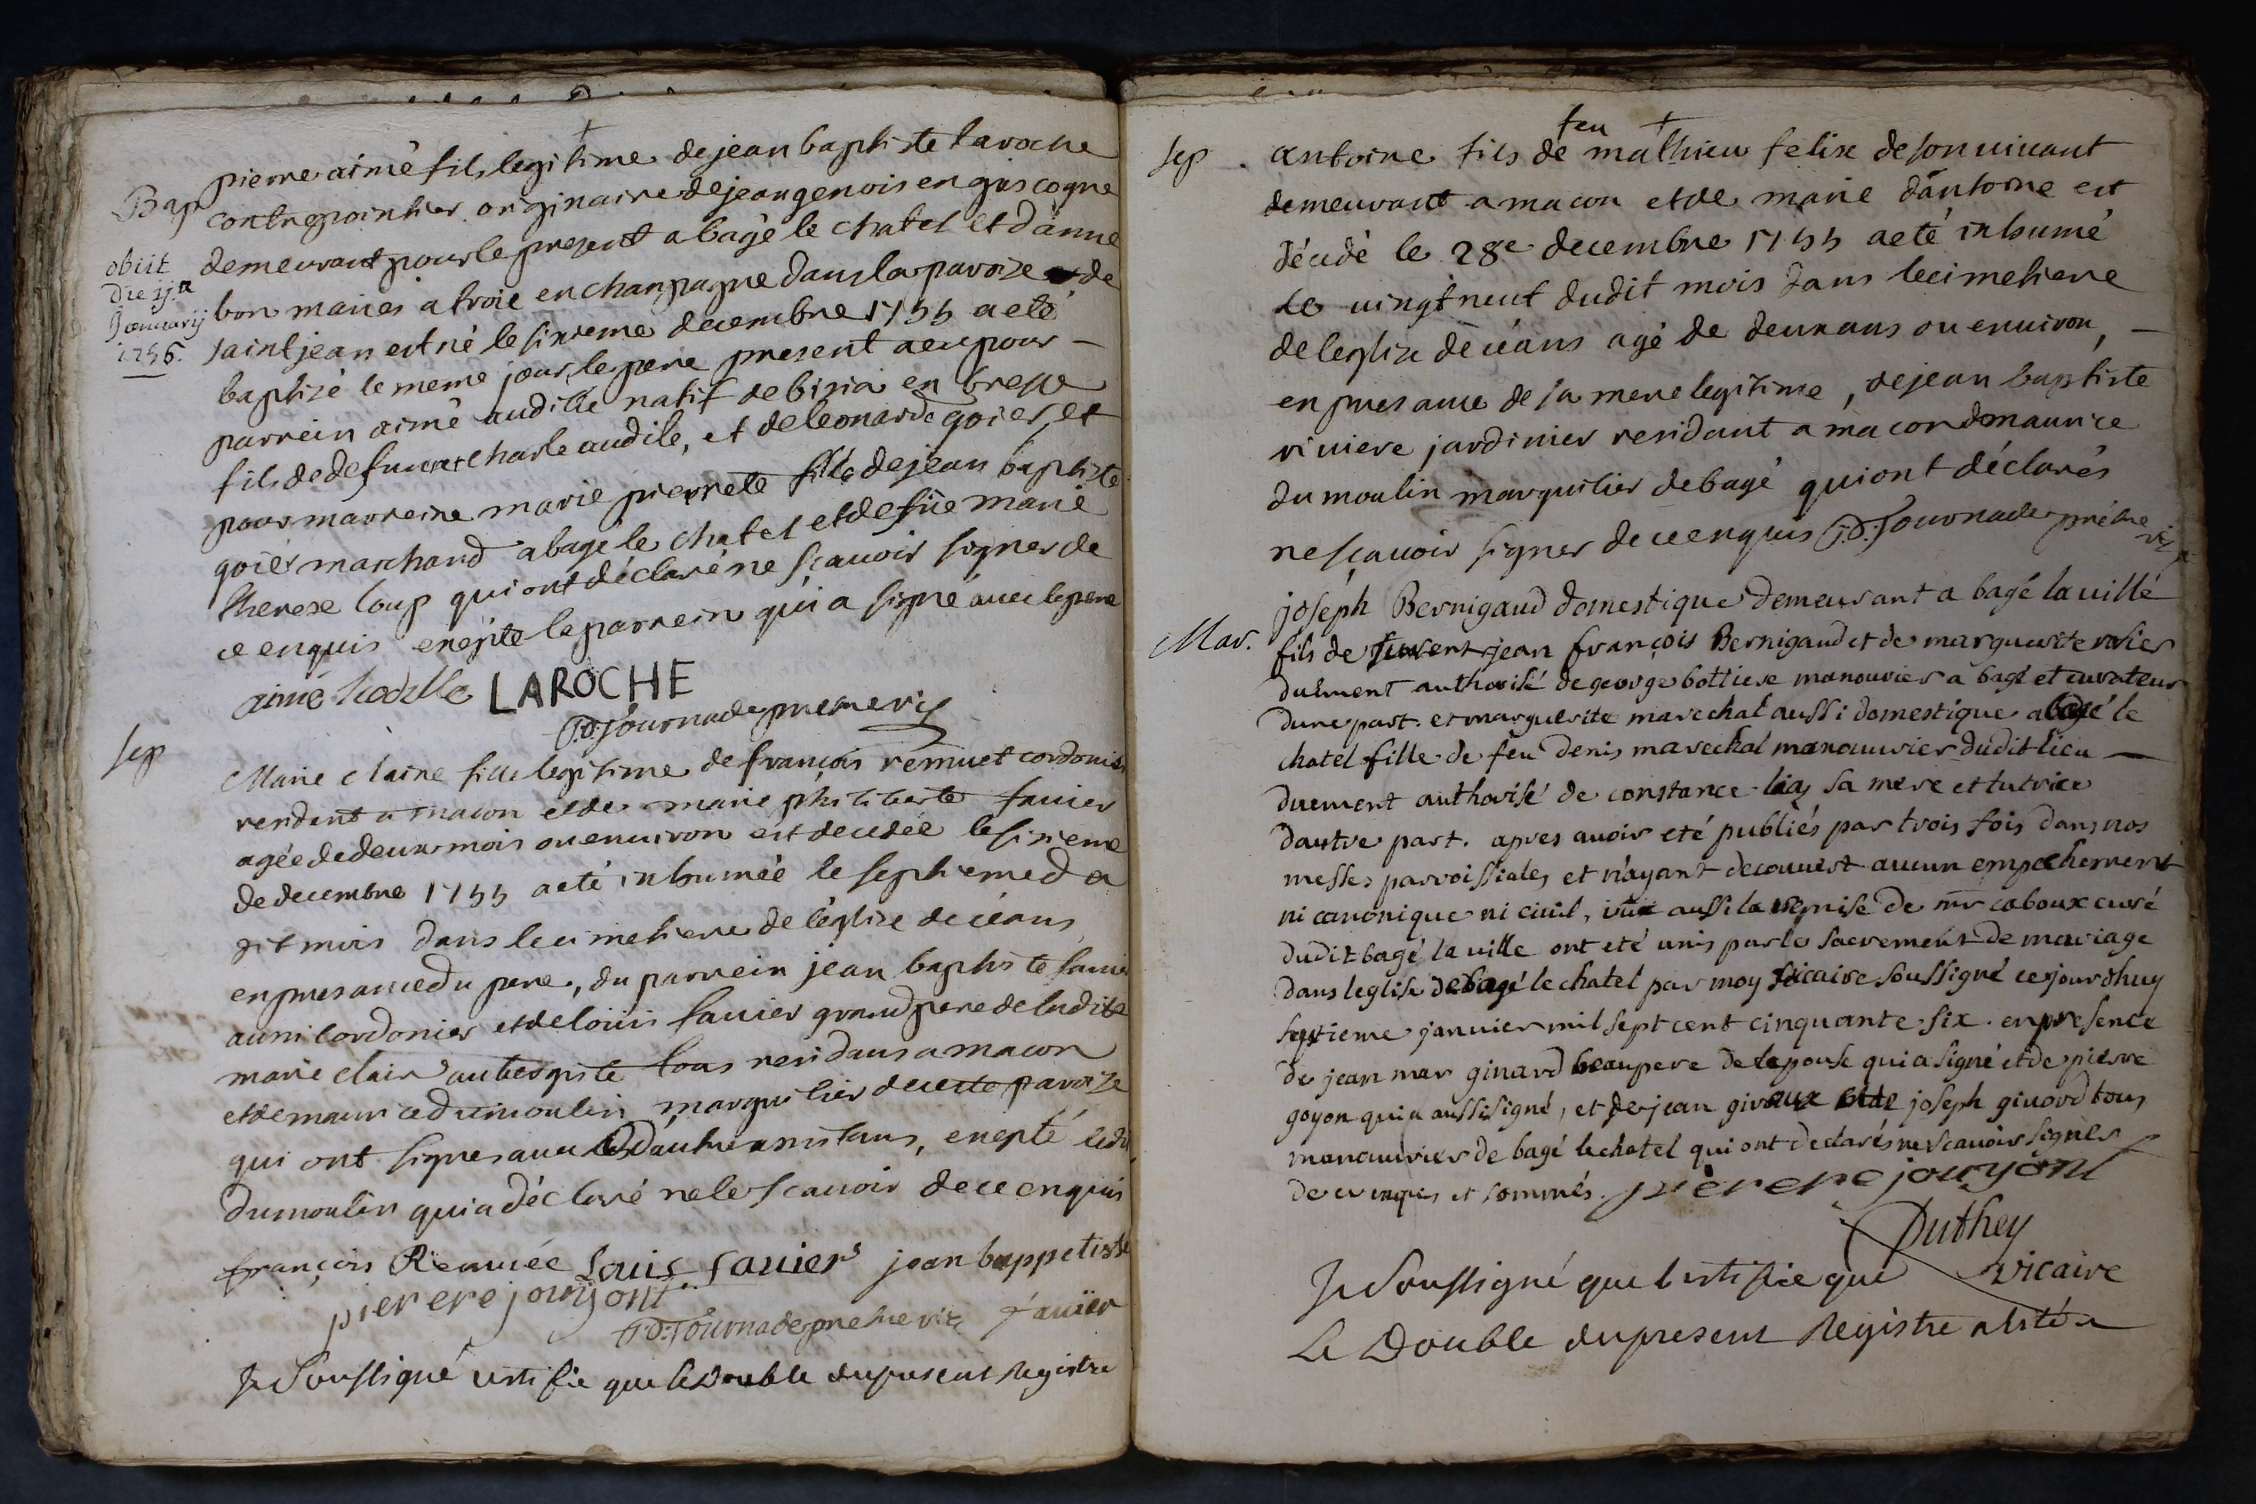 Bap
obiit
die ij.a
Januarij
1756.
pierre aimé fils legitime de jean baptiste laroche
contrepointier originaire de jeangenois en gascogne
demeurant pour le present a bagé le chatel et d'anne
bon mariés a troie en champagne dans la paroize de
saint jean est né le sixieme decembre 1755 a eté
baptizé le meme jour, le pere present a eu pour –
parrein aimé audille natif de bizia en bresse
fils de defunct charle audile, et de leonarde goier, et
pour marreine marie pierrete fille de jean baptiste
goier marchand a bagé le chatel et de füe marie
therese loup qui ont déclaré ne sçavoir signer de
ce enquis exépte le parrein qui a signé avec le pere
aimé LAROCHE
J.D. Tournade pretre vic
sep
Marie claire fille legitime de françois remuet cordonier
residant a macon et de marie philiberte favier
agée de deux mois ou environ est decedée le sixieme
de decembre 1755 a eté inhumée le septieme du
dit mois dans le cimetiere de l'eglize de céans
en presance du pere, du parrein jean baptiste favier
aussi cordonier et de loüis favier grand pere de ladite
marie clair aubergiste tous residans a macon
et de maurice dumoulin marguilier de cette paroize
qui ont signes avec d'autre assistans, exepté ledit
dumoulin qui a déclaré ne le scavoir de ce enquis
françois Remuée Louis favier jean bappetiste
pierere joüyont
J.D. Tournade pretre vic favier
Je Soussigné certifie que le double du present Registre
sep
feu
antoine fils de mathieu felix de son vivant
demeurant a macon et de marie d'antoine est
décédé le 28e decembre 1755 a eté inhumé
le vingt neuf dudit mois dans le cimetiere
de leglize de céans agé de deux ans ou environ, –
en presance de sa mere legitime, de jean baptiste
riviere jardinier residant a macon de maurice
du moulin marguilier de bagé qui ont déclarés
ne sçavoir signer de ce enquis J.D. Tournade prétre
vic
Mar.
joseph Bernigaud domestique demeurant a bagé la ville
fils de jean françois Bernigaud et de marguerite
duement authorisé de george bottiere manouvrier a bagé et curateur
dune part. et marguerite marechal aussi domestique a bagé le
chatel fille de feu denis marechal manouvrier dudit lieu –
duement authorisé de constance sa mere et tutrice
dautre part. apres avoir eté publiés par trois fois dans nos
messes parroissiales et n'ayant decouvert aucun empechement
ni canonique ni civil, vüe aussi la remise de mr caboux curé
dudit bagé la ville ont eté unis par le sacrement de mariage
dans leglise de bagé le chatel par moy vicaire soussigné ce jourdhuy
septieme janvier mil sept cent cinquante six. en presence
de jean mar ginard beaupere de lepouse qui a signé et de pierre
goyon qui a aussi signé, et de jean giroux et de joseph givord tous
manouvriers de bagé le chatel qui ont declarés ne scavoir signer
de ce enquis et sommés. pierere joüyont
Duthey
vicaire
Je Soussigné que certifie que
Le Double du present Registre a été